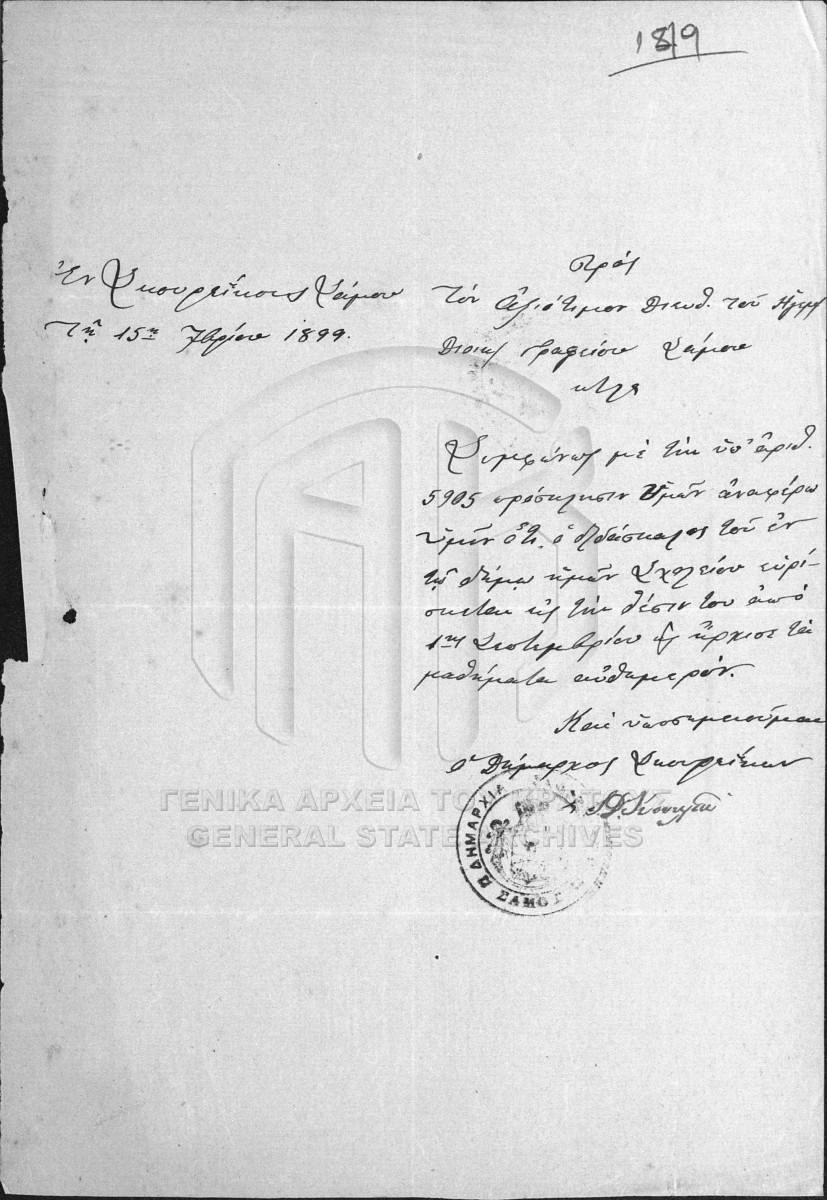 1819
Ἐν Σκουρέϊκοις Σάμου
Τῇ 15ῃ 7βρίου 1899.
Πρός
Τὸν Ἀξιότιμον Διευθ. τοῦ Ἡγεμ
Γραφείου Σάμου
Συμφώνως μὲ τὴν ὑπ' ἀριθ.
5905 πρόσκλησιν Ὑμῶν ἀναφέρω
Ὑμῖν ὅτι ὁ διδάσκαλος τοῦ ἐν
τῷ δήμῳ ἡμῶν Σχολείου εὑρί-
σκεται εἰς τὴν θέσιν του ἀπὸ
1ης Σεπτεμβρίου & ἤρχισε τὰ
μαθήματα αὐθημερόν.
Καὶ ὑποσημειοῦμαι
ὁ Δήμαρχος Σκουρεΐκων
ΔΗΜΑΡΧΙΑ
ΣΑΜΟΣ
ΓΕΝΙΚΑ ΑΡΧΕΙΑ ΤΟΥ ΚΡΑΤΟΥΣ
GENERAL STATE ARCHIVES